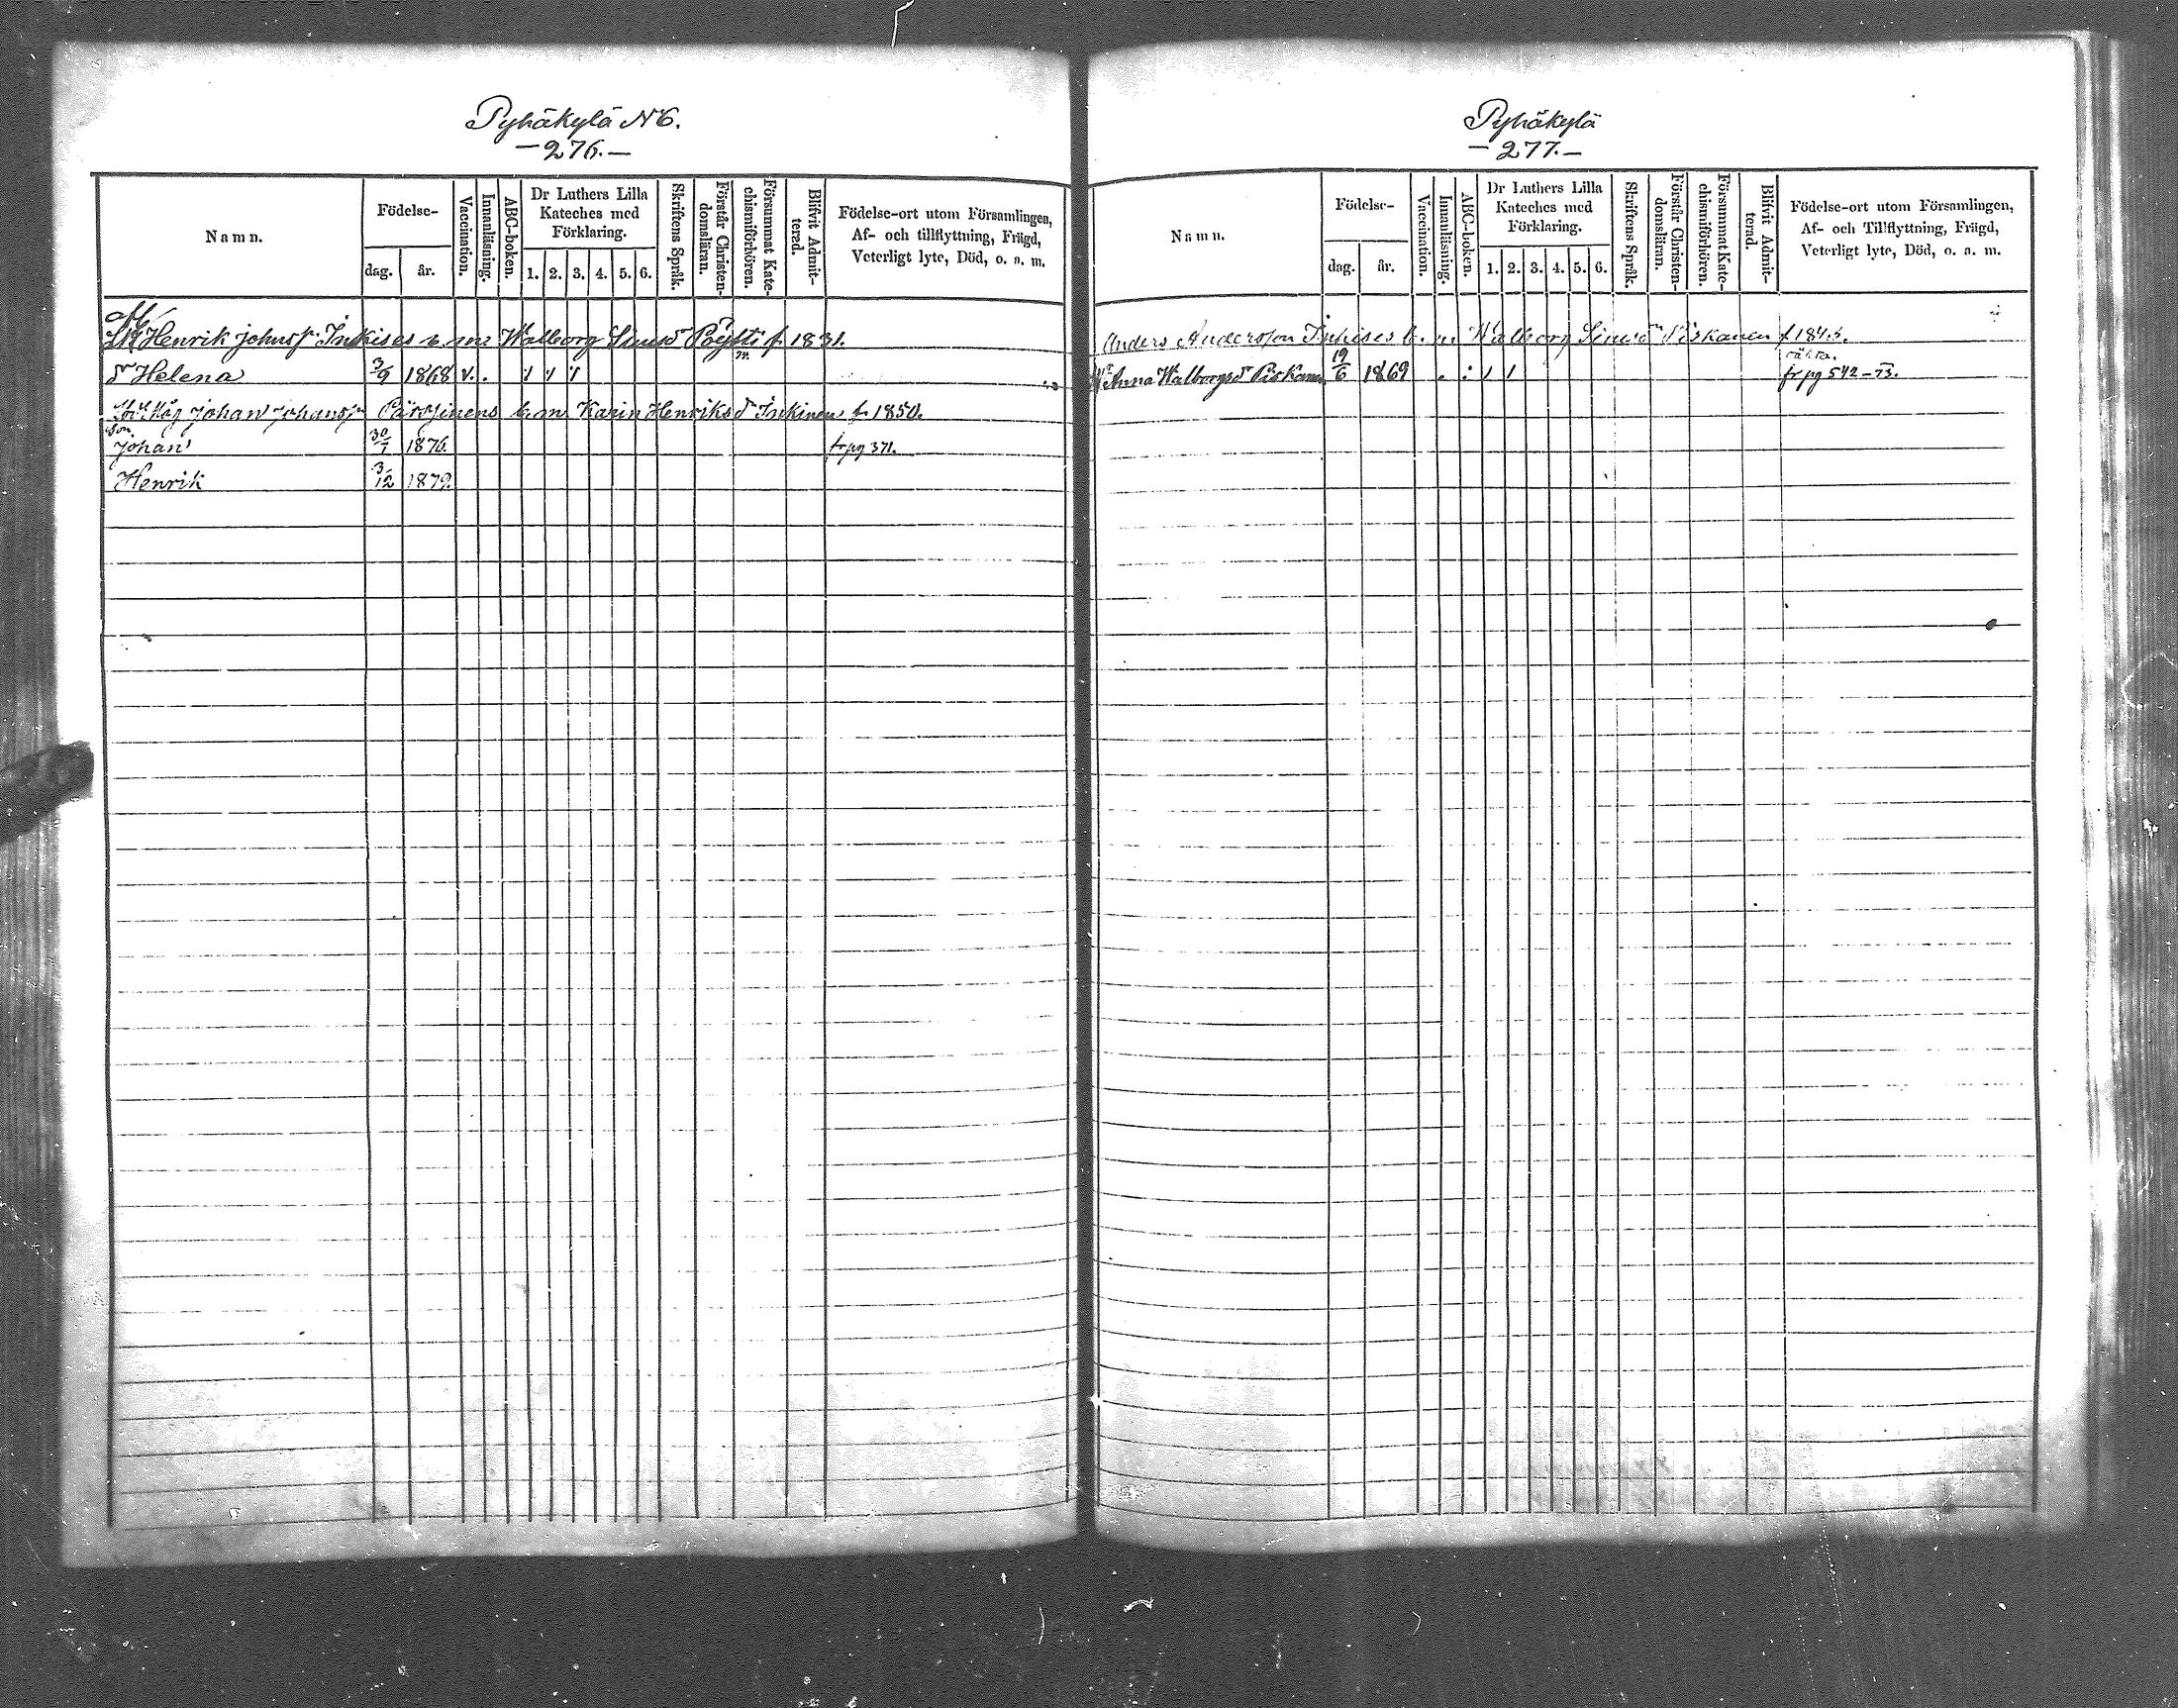 Pyhäkylä N 6.
— 276. —
Namn.
Födelse-
dag.
år.
Vaccination.
Innanläsning.
ABC-boken.
Dr Luthers Lilla
Kateches med
Förklaring.
1. 2. 3. 4. 5. 6.
Skriftens Språk.
Förstår Christen-
domsläran.
Försummat Kate-
chismiförhören.
Blifvit Admit-
terad.
Födelse-ort utom Församlingen,
Af- och tillflyttning, Frägd,
Veterligt lyte, Död, o. a. m.
Henrik Johnss. Inkises b. m Walborg Simsdr Pöyhti f 1831.
dr Helena 3/9 1868 v. .
Johan Johanss. Pärssinens b. m Karin Henriksdr Inkinen f 1850.
son
Johan 30/1 1876. fr pg 371.
Henrik 3/12 1879.
Pyhäkylä
— 277. —
Namn.
Födelse-
dag.
år.
Vaccination.
Innanläsning.
ABC-boken.
Dr Luthers Lilla
Kateches med
Förklaring.
1. 2. 3. 4. 5. 6.
Skriftens Språk.
Förstår Christen-
domsläran.
Försummat Kate-
chismiförhören.
Blifvit Admit-
terad.
Födelse-ort utom Församlingen,
Af- och Tillflyttning, Frägd,
Veterligt lyte, Död, o. a. m.
Anders Andersson Inkises b. m Walborg Simsdr Piskanen f 1845.
Anna Walborgsdr Piskanen 19/6 1869 fr pg 542-73.